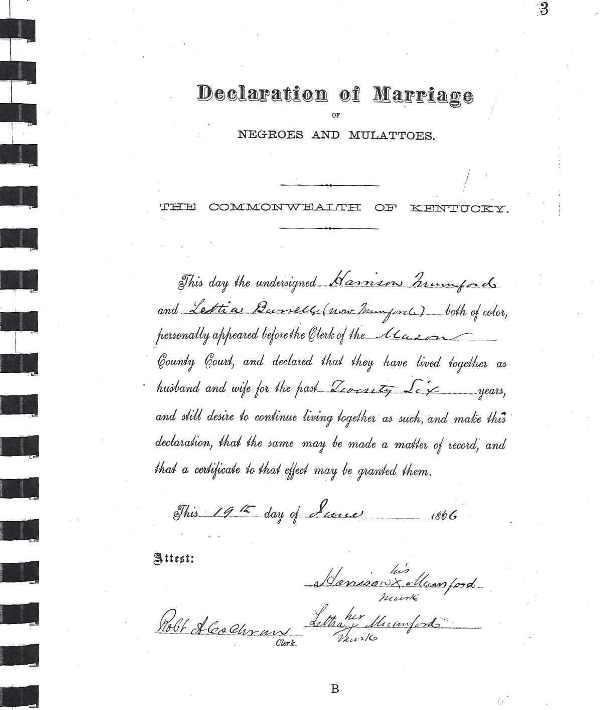 3
Declaration of Marriage
OF
NEGROES AND MULATTOES.
THE COMMONWEALTH OF KENTUCKY.
This day the undersigned Harrison Mumford
and Lettia (now Mumford) both of color,
personally appeared before the Clerk of the Mason
County Court, and declared that they have lived together as
husband and wife for the past Twenty Six years,
and still desire to continue living together as such, and make this
declaration, that the same may be made a matter of record, and
that a certificate to that effect may be granted them.
This 19th day of June 1866
Attest:
his
Harrison X Mumford
mark
her
Letha X Mumford
mark
Robt A Cochran
Clerk.
B